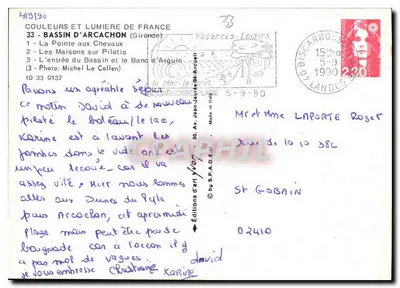 4/9/90
COULEURS ET LUMIERE DE FRANCE
33 - BASSIN D'ARCACHON (Gironde)
1 - La Pointe aux Chevaux
2 - Les Maisons sur Pilotis
3 - L'entrée du Bassin et le Banc d'Arguin
(3 - Photo: Michel Le Collen)
10 33 0137
33
Vacances-Loisirs
5-9-90
BISCARROSSE
5-9
1990
LANDES
2,30
Passons un agréable séjour
ce matin David a de nouveau
piloté le bateau/le lac,
Karine est a l'avant les
jambes dans le vide tant est
un peu car il va
asses vite, Hier nous sommes
allés aux Dunes du Pyla
puis Arcachon, cet après midi
plage mais peut être pas de
baignade car a l'océan il y
a pas mal de vagues
je vous embrasse Christiane
Karine
david
Editions d'art yvon
30, Av. Jean-Jaurès
© by S.P.A.D.E.M.
Made in Italy
Mr et Mme LAPORTE Roger
Rue de la 10 38L
ST GOBAIN
02410